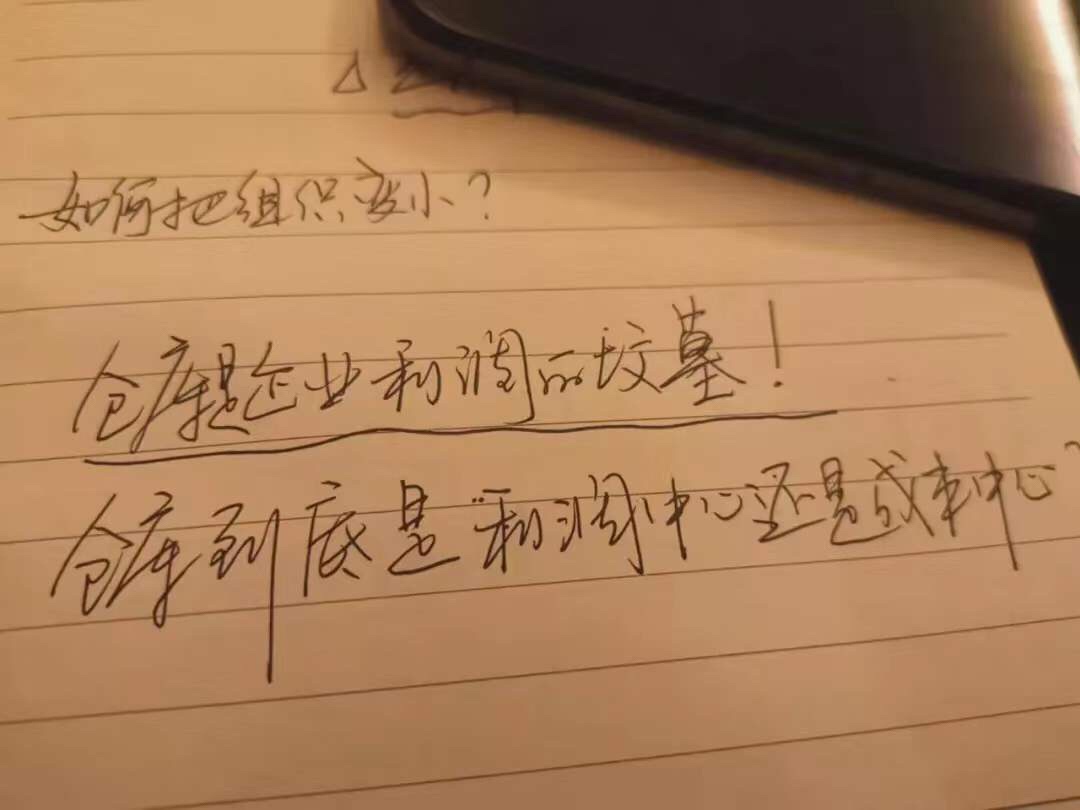 △
如何把组织变小？
仓库是企业利润的坟墓！
仓库到底是“利润中心还是成本中心？